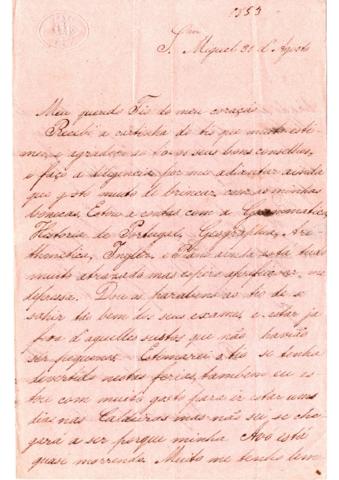 1853
S. Miguel 31 d'Agosto
Meu querido Tio do meu coração
Recebi a cartinha do tio que muito esti-
mei e agradeço os bons seus bons conselhos,
e faço a diligencia por me adiantar ainda
que gosto muito de brincar, com as minhas
bonecas. Estou a contas com a Grammatica,
Historia de Portugal, Geographia, Are-
thmetica, Inglez, e Piano ainda está tudo
muito atrazado mas espero aproveitar, me
depressa. Dou os parabens ao tio de se
sahir tão bem dos seus exames e estar já
fora d'aquelles sustos que não havião
ser pequenos. Estimarei o tio se tenha
devertido nestas ferias, tambem eu es-
tou com muito gosto para ir estar uns
dias nas Caldeiras mas não sei se che-
gará a ser porque minha Avó está
quasi morrendo. Muito me tenho lem-